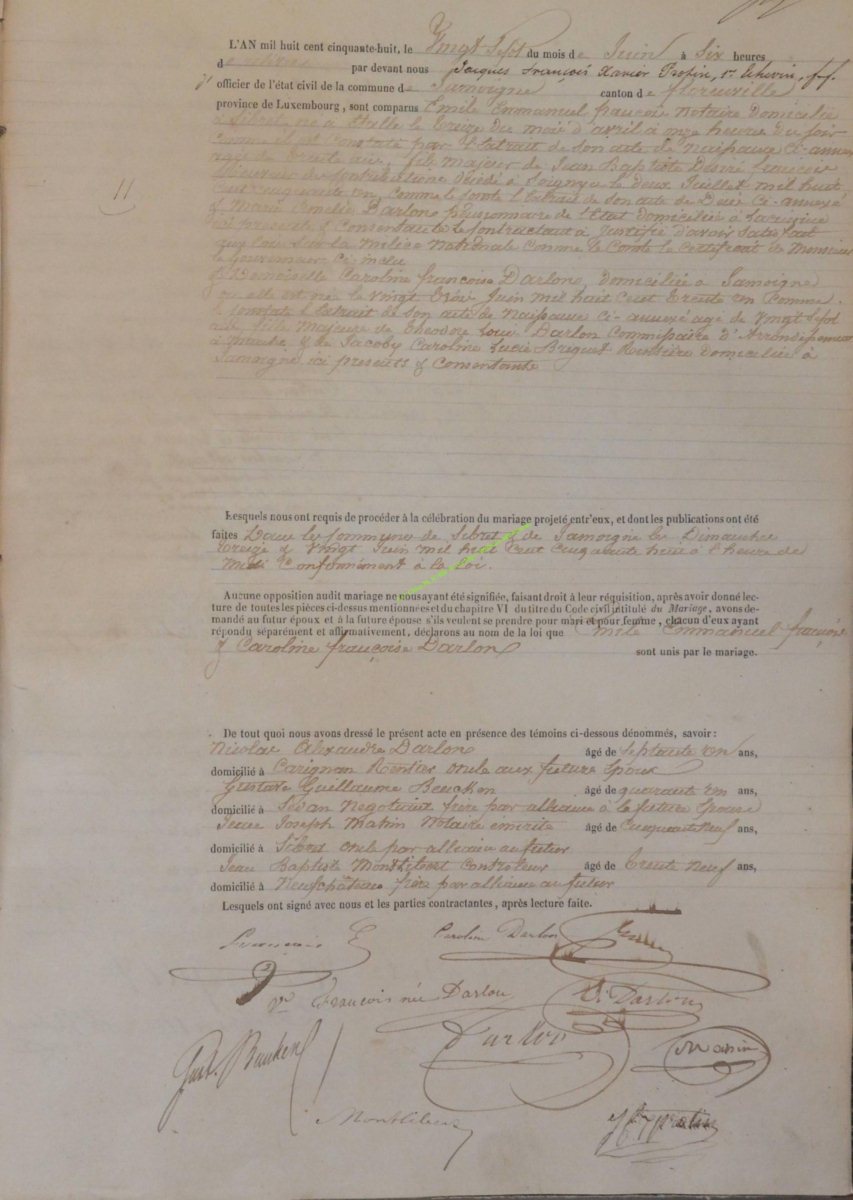 L'AN mil huit cent cinquante-huit, le Vingt Sept du mois de Juin à Six heures
d par devant nous Jacques François Xavier
officier de l'état civil de la commune de Jamoigne canton de florenville
province de Luxembourg, sont comparus Emile Emmanuel françois Notaire domicilié
à Sibret né à Etalle le treize du mois d'avril à onze heures du soir
comme il est constaté par l'Extrait de son acte de Naissance ci-annexé
agé de trente ans, fils majeur de Jean Baptiste Désiré françois
Receveur de Contributions décédé à Soignies le deux Juillet mil huit
Cent cinquante un, comme le Constate l'Extrait de son acte de Décès Ci-annexé
& Marie Amélie Darlon Pensionnaire de l'Etat domiciliée à
ici présente & Consentante le Contractant a Justifié d'avoir Satisfait
aux lois sur la Milice Nationale Comme le Constate le Certificat de Monsieur
le Gouverneur Ci-inclu
& Demoiselle Caroline françoise Darlon, domiciliée à Jamoigne
où elle est née le Vingt Juin mil huit Cent trente un Comme
le Constate l'Extrait de Son acte de Naissance Ci-annexé agé de Vingt Sept
ans, fille Majeure de Théodore Louis Darlon Commissaire d'Arrondissement
à & de Jacoby Caroline Lucie Rentière domiciliée à
Jamoigne ici présents & Consentants
11
Lesquels nous ont requis de procéder à la célébration du mariage projeté entr'eux, et dont les publications ont été
faites Dans les Communes de Sibret & de Jamoigne les Dimanches
treize & Vingt Juin mil huit Cent Cinquante huit à l'heure de
Midi Conformément à la loi.
Aucune opposition audit mariage ne nous ayant été signifiée, faisant droit à leur réquisition, après avoir donné lec-
ture de toutes les pièces ci-dessus mentionnées et du chapitre VI du titre du Code civil intitulé du Mariage, avons de-
mandé au futur époux et à la future épouse s'ils veulent se prendre pour mari et pour femme, chacun d'eux ayant
répondu séparément et affirmativement, déclarons au nom de la loi que Emile Emmanuel françois
& Caroline françoise Darlon sont unis par le mariage.
De tout quoi nous avons dressé le présent acte en présence des témoins ci-dessous dénommés, savoir :
Nicolas Alexandre Darlon âgé de Septante un ans,
domicilié à Carignan Rentier Oncle aux futurs Epoux
Gustave Guillaume Beucken âgé de quarante un ans,
domicilié à Sedan Negotiant frère par alliance à la future Epouse
Jean Joseph Notaire émérite âgé de Cinquante Neuf ans,
domicilié à Sibret Oncle par alliance au futur
Jean Baptiste Controleur âgé de trente Neuf ans,
domicilié à Neufchâteau frère par alliance au futur
Lesquels ont signé avec nous et les parties contractantes, après lecture faite.
Caroline Darlon
Ve François née Darlon
Darlon
Gust. Beucken
Darlon